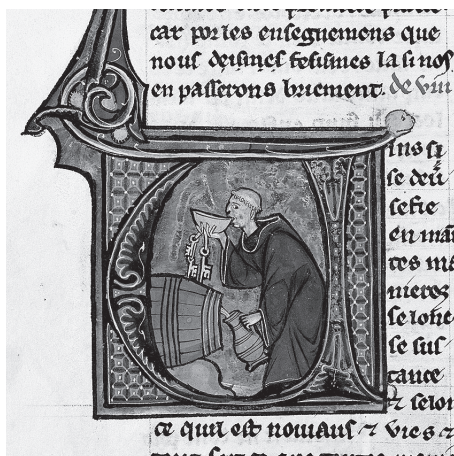 car por les ensegnemens que
nous deismes fesimes la si nos
en passerons briement. de vin
ins si
se deu
en man
nieres
se lonc
se sus
tance
⁊ selon
ce quil est nouiaus ⁊ vies ⁊